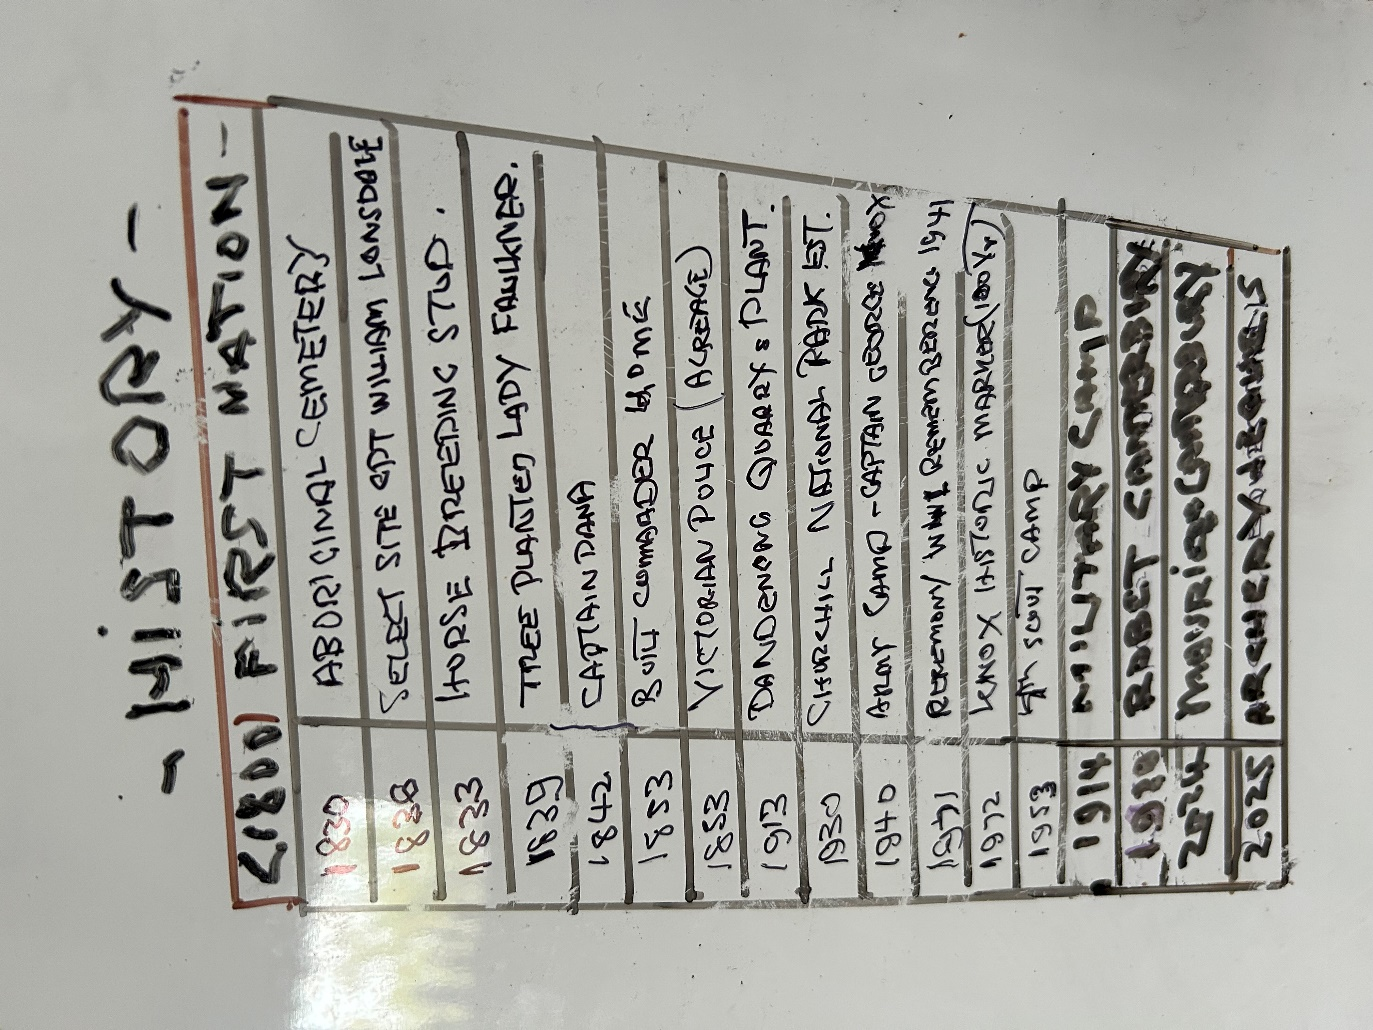 - HISTORY -
<1800 FIRST NATION -
1830 ABORIGINAL CEMETERY
1838 SELECT SITE CPT WILLIAM LONSDALE
1833 HORSE BREEDING STUD.
1839 TREE PLANTED LADY FAULKNER.
1842 CAPTAIN DANA
1853 BUILT COMMADER HOME
1853 VICTORIAN POLICE (ACREAGE)
1913 DANDENONG QUARRY & PLANT.
1930 CHURCHILL NATIONAL PARK EST.
1940 ARMY CAMP - CAPTAIN GEORGE KNOX
1971 REMEMBERENCE 1941
1972 KNOX HISTORIC MARKER (100 Yr)
1953 SCOUT CAMP
1914 MILITARY CAMP
1980
ARCHERY
2025